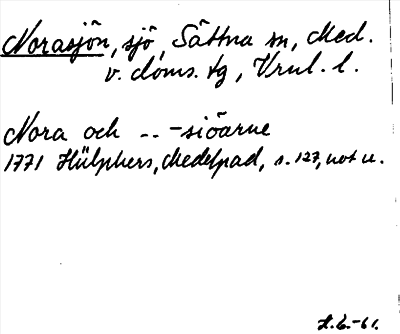 Norasjön, sjö, Sättna sn, Med.
v. doms. tg, Vrnl. l.
Nora och - - -siöarne
1771 Hülphers, Medelpad, s. 127, not u.
H.G.-61.